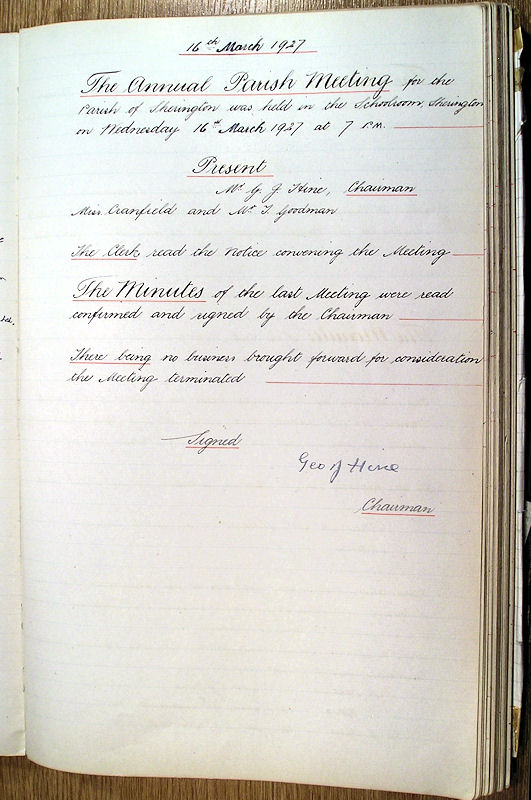 16th March 1927
The Annual Parish Meeting for the
Parish of Sherington was held in the Schoolroom, Sherington
on Wednesday 16th March 1927 at 7 P.M.
Present
Mr G. J. Hine, Chairman
Miss Cranfield and Mr T. Goodman
The Clerk read the Notice convening the Meeting
The Minutes of the last Meeting were read
confirmed and signed by the Chairman
There being no business brought forward for consideration
the Meeting terminated
Signed
Geo J Hine
Chairman